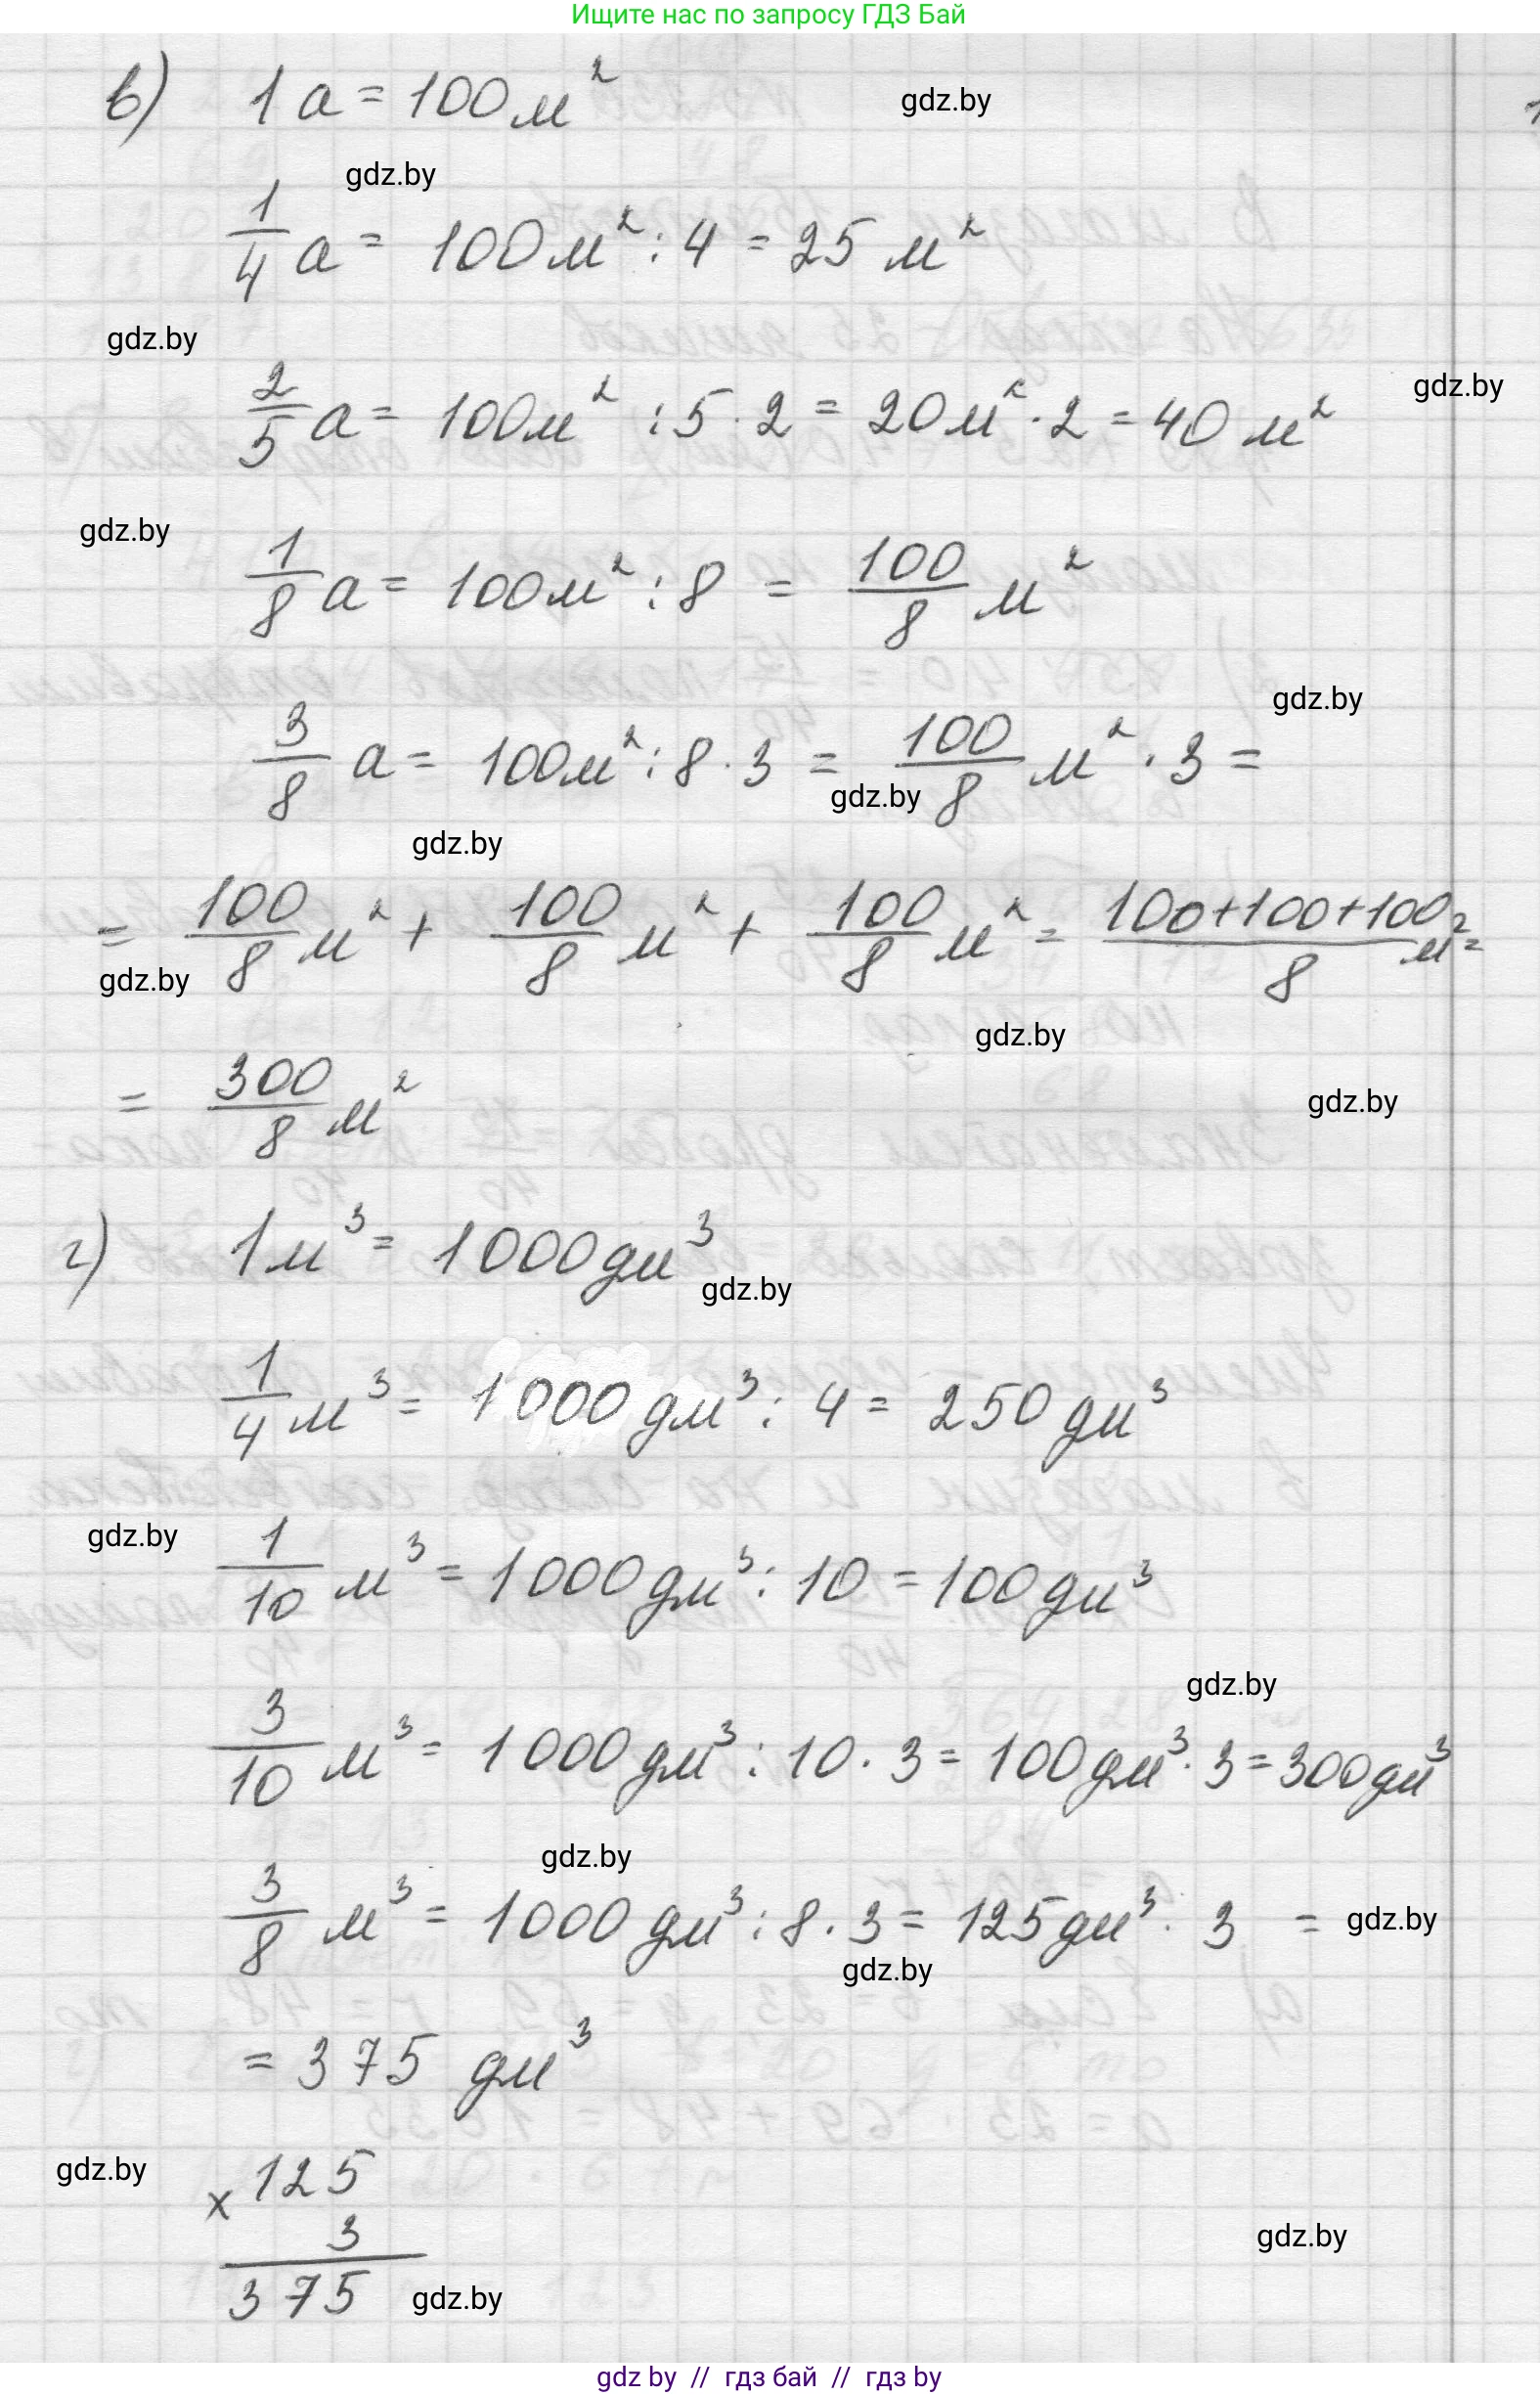 Ищите нас по запросу ГДЗ Бай
в) 1 а = 100 м²
gdz.by
gdz.by
1/4 а = 100 м² : 4 = 25 м²
gdz.by
gdz.by
2/5 а = 100 м² : 5 · 2 = 20 м² · 2 = 40 м²
gdz.by
1/8 а = 100 м² : 8 = 100/8 м²
gdz.by
3/8 а = 100 м² : 8 · 3 = 100/8 м² · 3 =
gdz.by
gdz.by
= 100/8 м² + 100/8 м² + 100/8 м² = (100+100+100)/8 м² =
gdz.by
gdz.by
= 300/8 м²
gdz.by
г) 1 м³ = 1000 дм³
gdz.by
1/4 м³ = 1000 дм³ : 4 = 250 дм³
gdz.by
1/10 м³ = 1000 дм³ : 10 = 100 дм³
gdz.by
3/10 м³ = 1000 дм³ : 10 · 3 = 100 дм³ · 3 = 300 дм³
gdz.by
3/8 м³ = 1000 дм³ : 8 · 3 = 125 дм³ · 3 =
gdz.by
gdz.by
= 375 дм³
gdz.by
× 125
3
gdz.by
375
gdz.by
gdz by // гдз бай // гдз by